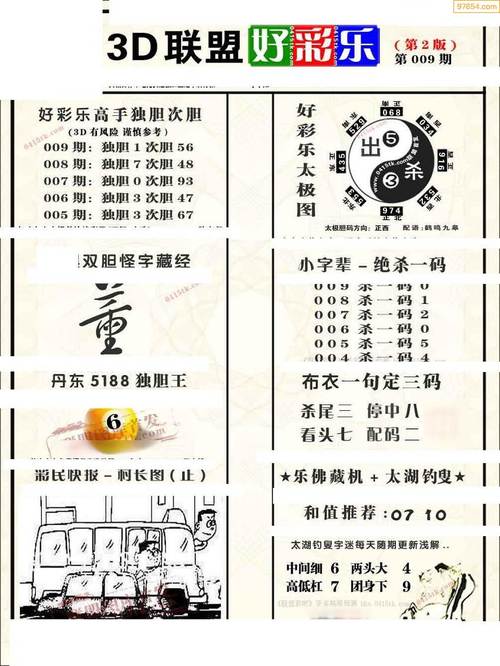 97854.com
3D联盟好彩乐
(第2版)
第009期
好彩乐高手独胆次胆
(3D有风险 谨慎参考)
009期: 独胆1次胆56
008期: 独胆7次胆48
007期: 独胆0次胆93
006期: 独胆3次胆47
005期: 独胆3次胆67
好彩乐太极图
正南
068
正东
435
529
034
916
正西
532
533
正北
974
出5
3杀
太极胆码方向: 正西 配语: 鹤鸣九皋
双胆怪字藏经
小字辈-绝杀一码
009 杀一码 0
008 杀一码 1
007 杀一码 2
006 杀一码 5
005 杀一码 2
004 杀一码 4
丹东5188独胆王
6
布衣一句定三码
杀尾三 停中八
看头七 配码二
彩民快报-村长图(止)
★乐佛藏机+太湖钓叟★
和值推荐: 07 10
太湖钓叟字迷每天随期更新浅解..
中间细 6 两头大 4
高低杠 7 团身下 9